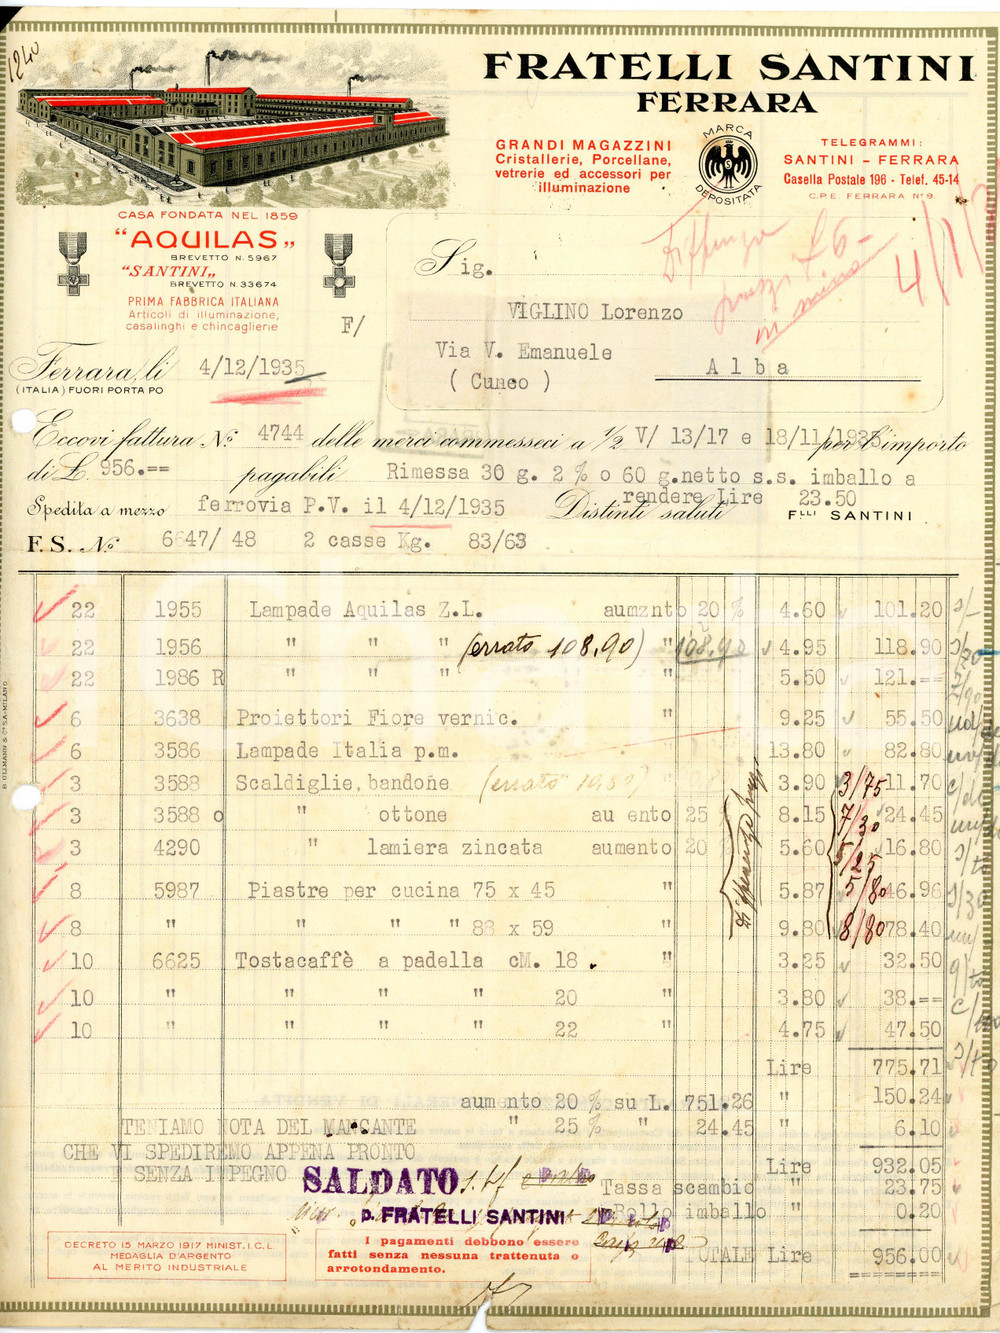 1240
FRATELLI SANTINI
FERRARA
GRANDI MAGAZZINI
Cristallerie, Porcellane,
vetrerie ed accessori per
illuminazione
MARCA
DEPOSITATA
TELEGRAMMI:
SANTINI - FERRARA
Casella Postale 196 - Telef. 45-14
C.P.E. FERRARA N° 9
CASA FONDATA NEL 1859
"AQUILAS„
BREVETTO N. 5967
"SANTINI„
BREVETTO N. 33674
PRIMA FABBRICA ITALIANA
Articoli di illuminazione,
casalinghi e chincaglierie
F/
Differenza £6-
prezzi
in meno
4/11/
Sig.
VIGLINO Lorenzo
Via V. Emanuele
Alba
( Cuneo )
Ferrara, li 4/12/1935
(ITALIA) FUORI PORTA PO
Eccovi fattura N° 4744 delle merci commesseci a ½ V/ 13/17 e 18/11/1935 per l'importo
di £. 956.== pagabili Rimessa 30 g. 2 % o 60 g.netto s.s. imballo a
rendere Lire 23.50
Spedita a mezzo ferrovia P.V. il 4/12/1935 Distinti saluti F.LLI SANTINI
F.S. N° 6647/ 48 2 casse Kg. 83/63
22 1955 Lampade Aquilas Z.L. aumznto 20 % 4.60 101.20
22 1956 " " " (errato 108,90) " 108,90 4.95 118.90
22 1986 R " " " " 5.50 121.==
6 3638 Proiettori Fiore vernic. " 9.25 55.50
6 3586 Lampade Italia p.m. 13.80 82.80
3 3583 Scaldiglie,bandone (errato 3.90 3/75 11.70
3 3588 o " ottone au ento 25 8.15 7/30 24.45
3 4290 " lamiera zincata aumento 20 5.60 5/25 16.80
8 5987 Piastre per cucina 75 x 45 " 5.87 5/80 46.96
8 " " " " 88 x 59 " 9.80 8/80 78.40
10 6625 Tostacaffè a padella cM. 18 . " 3.25 32.50
10 " " " " 20 " 3.80 38.==
10 " " " " 22 " 4.75 47.50
Lire 775.71
aumento 20 % su L. 751.26 " 150.24
" 25 % " 24.45 " 6.10
TENIAMO NOTA DEL MANCANTE
CHE VI SPEDIREMO APPENA PRONTO
E SENZA IMPEGNO
Lire 932.05
SALDATO
Tassa scambio " 23.75
p. FRATELLI SANTINI
Bollo imballo " 0.20
TOTALE Lire 956.00
DECRETO 15 MARZO 1917 MINIST. I.C.L.
MEDAGLIA D'ARGENTO
AL MERITO INDUSTRIALE
I pagamenti debbono essere
fatti senza nessuna trattenuta o
arrotondamento.